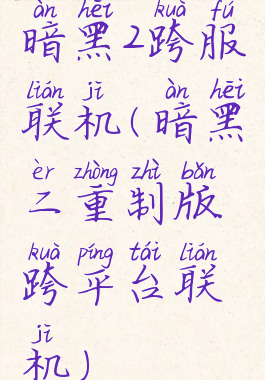 àn hēi kuà fú
暗黑2跨服
lián jī àn hēi
联机(暗黑
èr zhòng zhì bǎn
二重制版
kuà píng tái lián
跨平台联
jī
机)